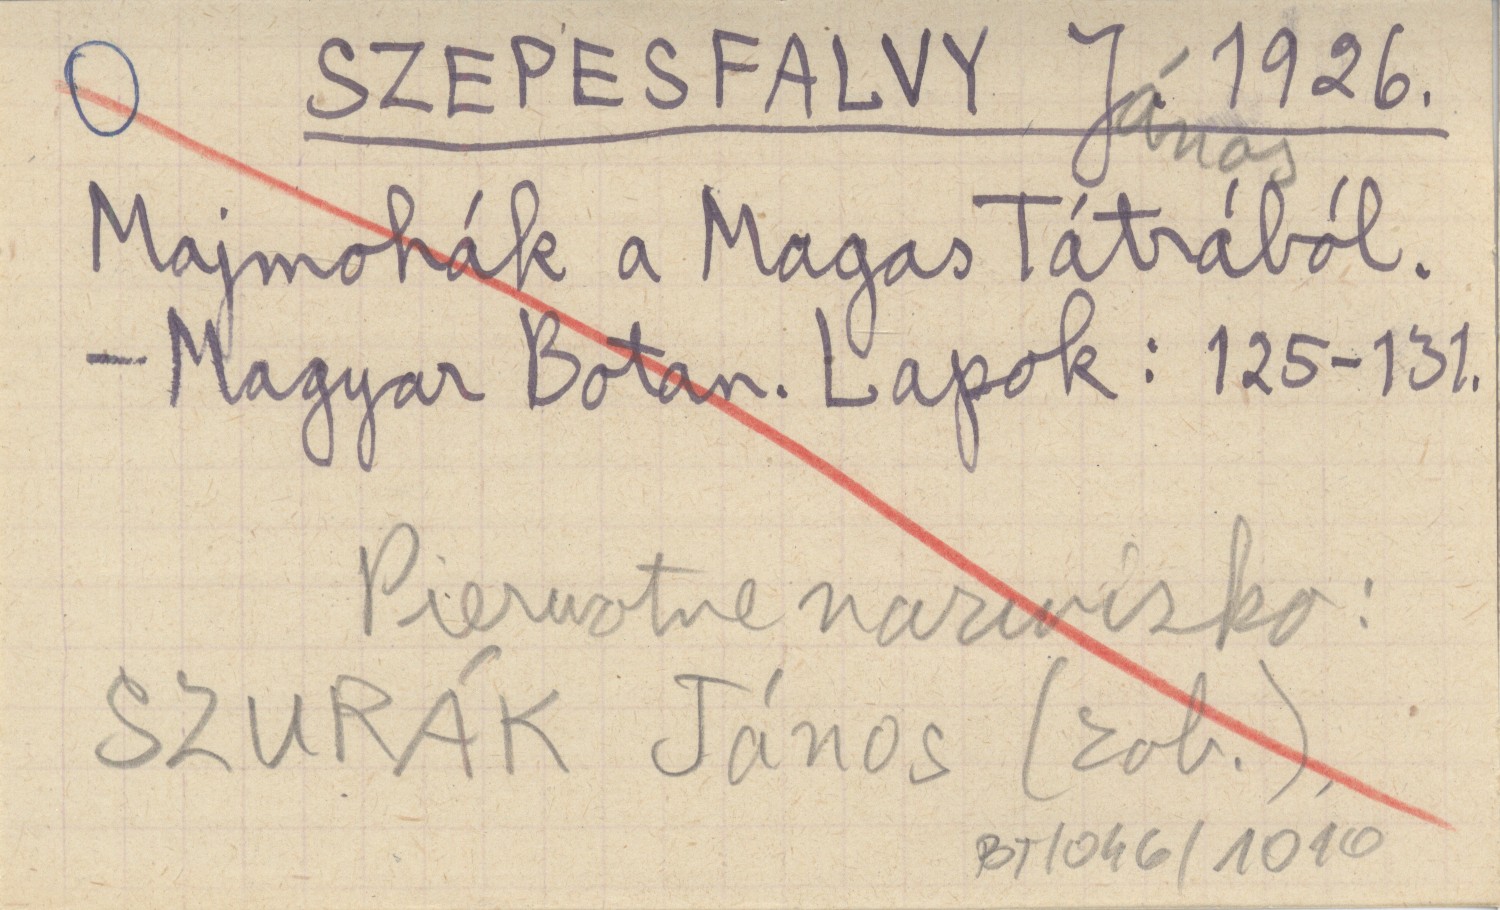 SZEPESFALVY J. 1926.
ános
Majmohák a Magas Tátrából.
– Magyar Botan. Lapok: 125-131.
Pierwotne nazwisko:
SZURÁK János (zob.),
BT/046/1010